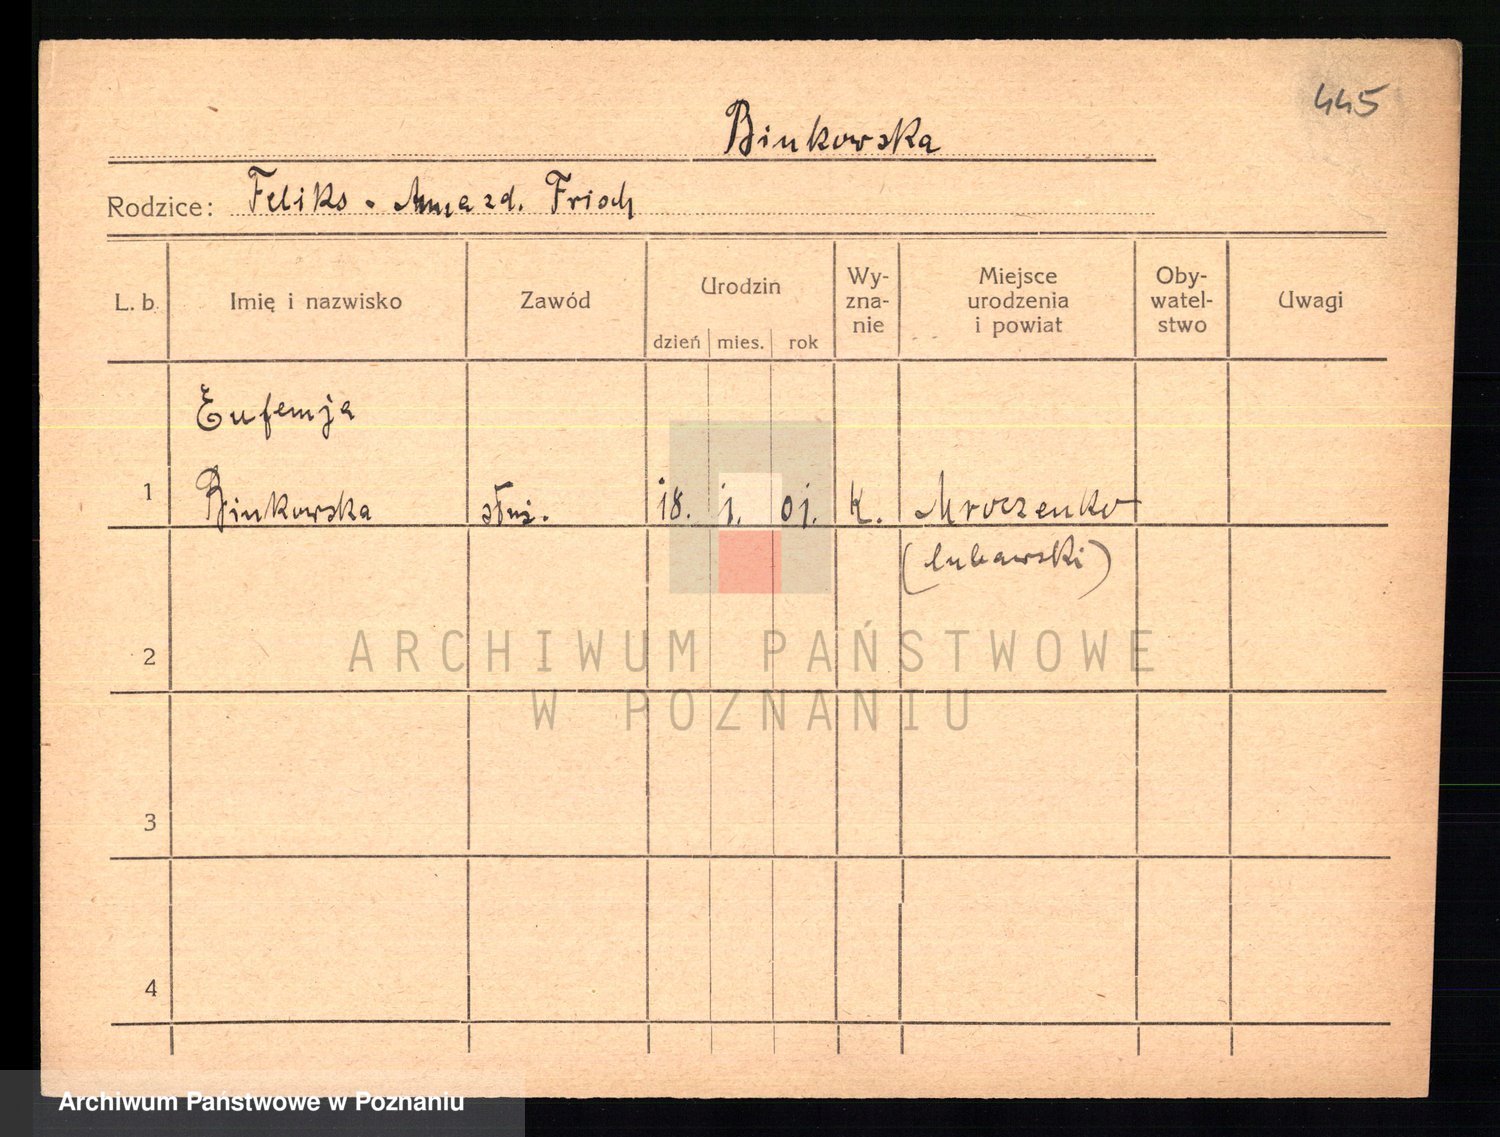 445
Binkowska
Rodzice: Feliks - Anna zd. Frisch
L. b. Imię i nazwisko Zawód Urodzin Wy- Miejsce Oby- Uwagi
zna- urodzenia watel-
nie i powiat stwo
dzień mies. rok
Eufemja
1 Binkowska służ. 18. 1. 01. k. Mroczenko
(lubawski)
2
3
4
ARCHIWUM PAŃSTWOWE
W POZNANIU
Archiwum Państwowe w Poznaniu